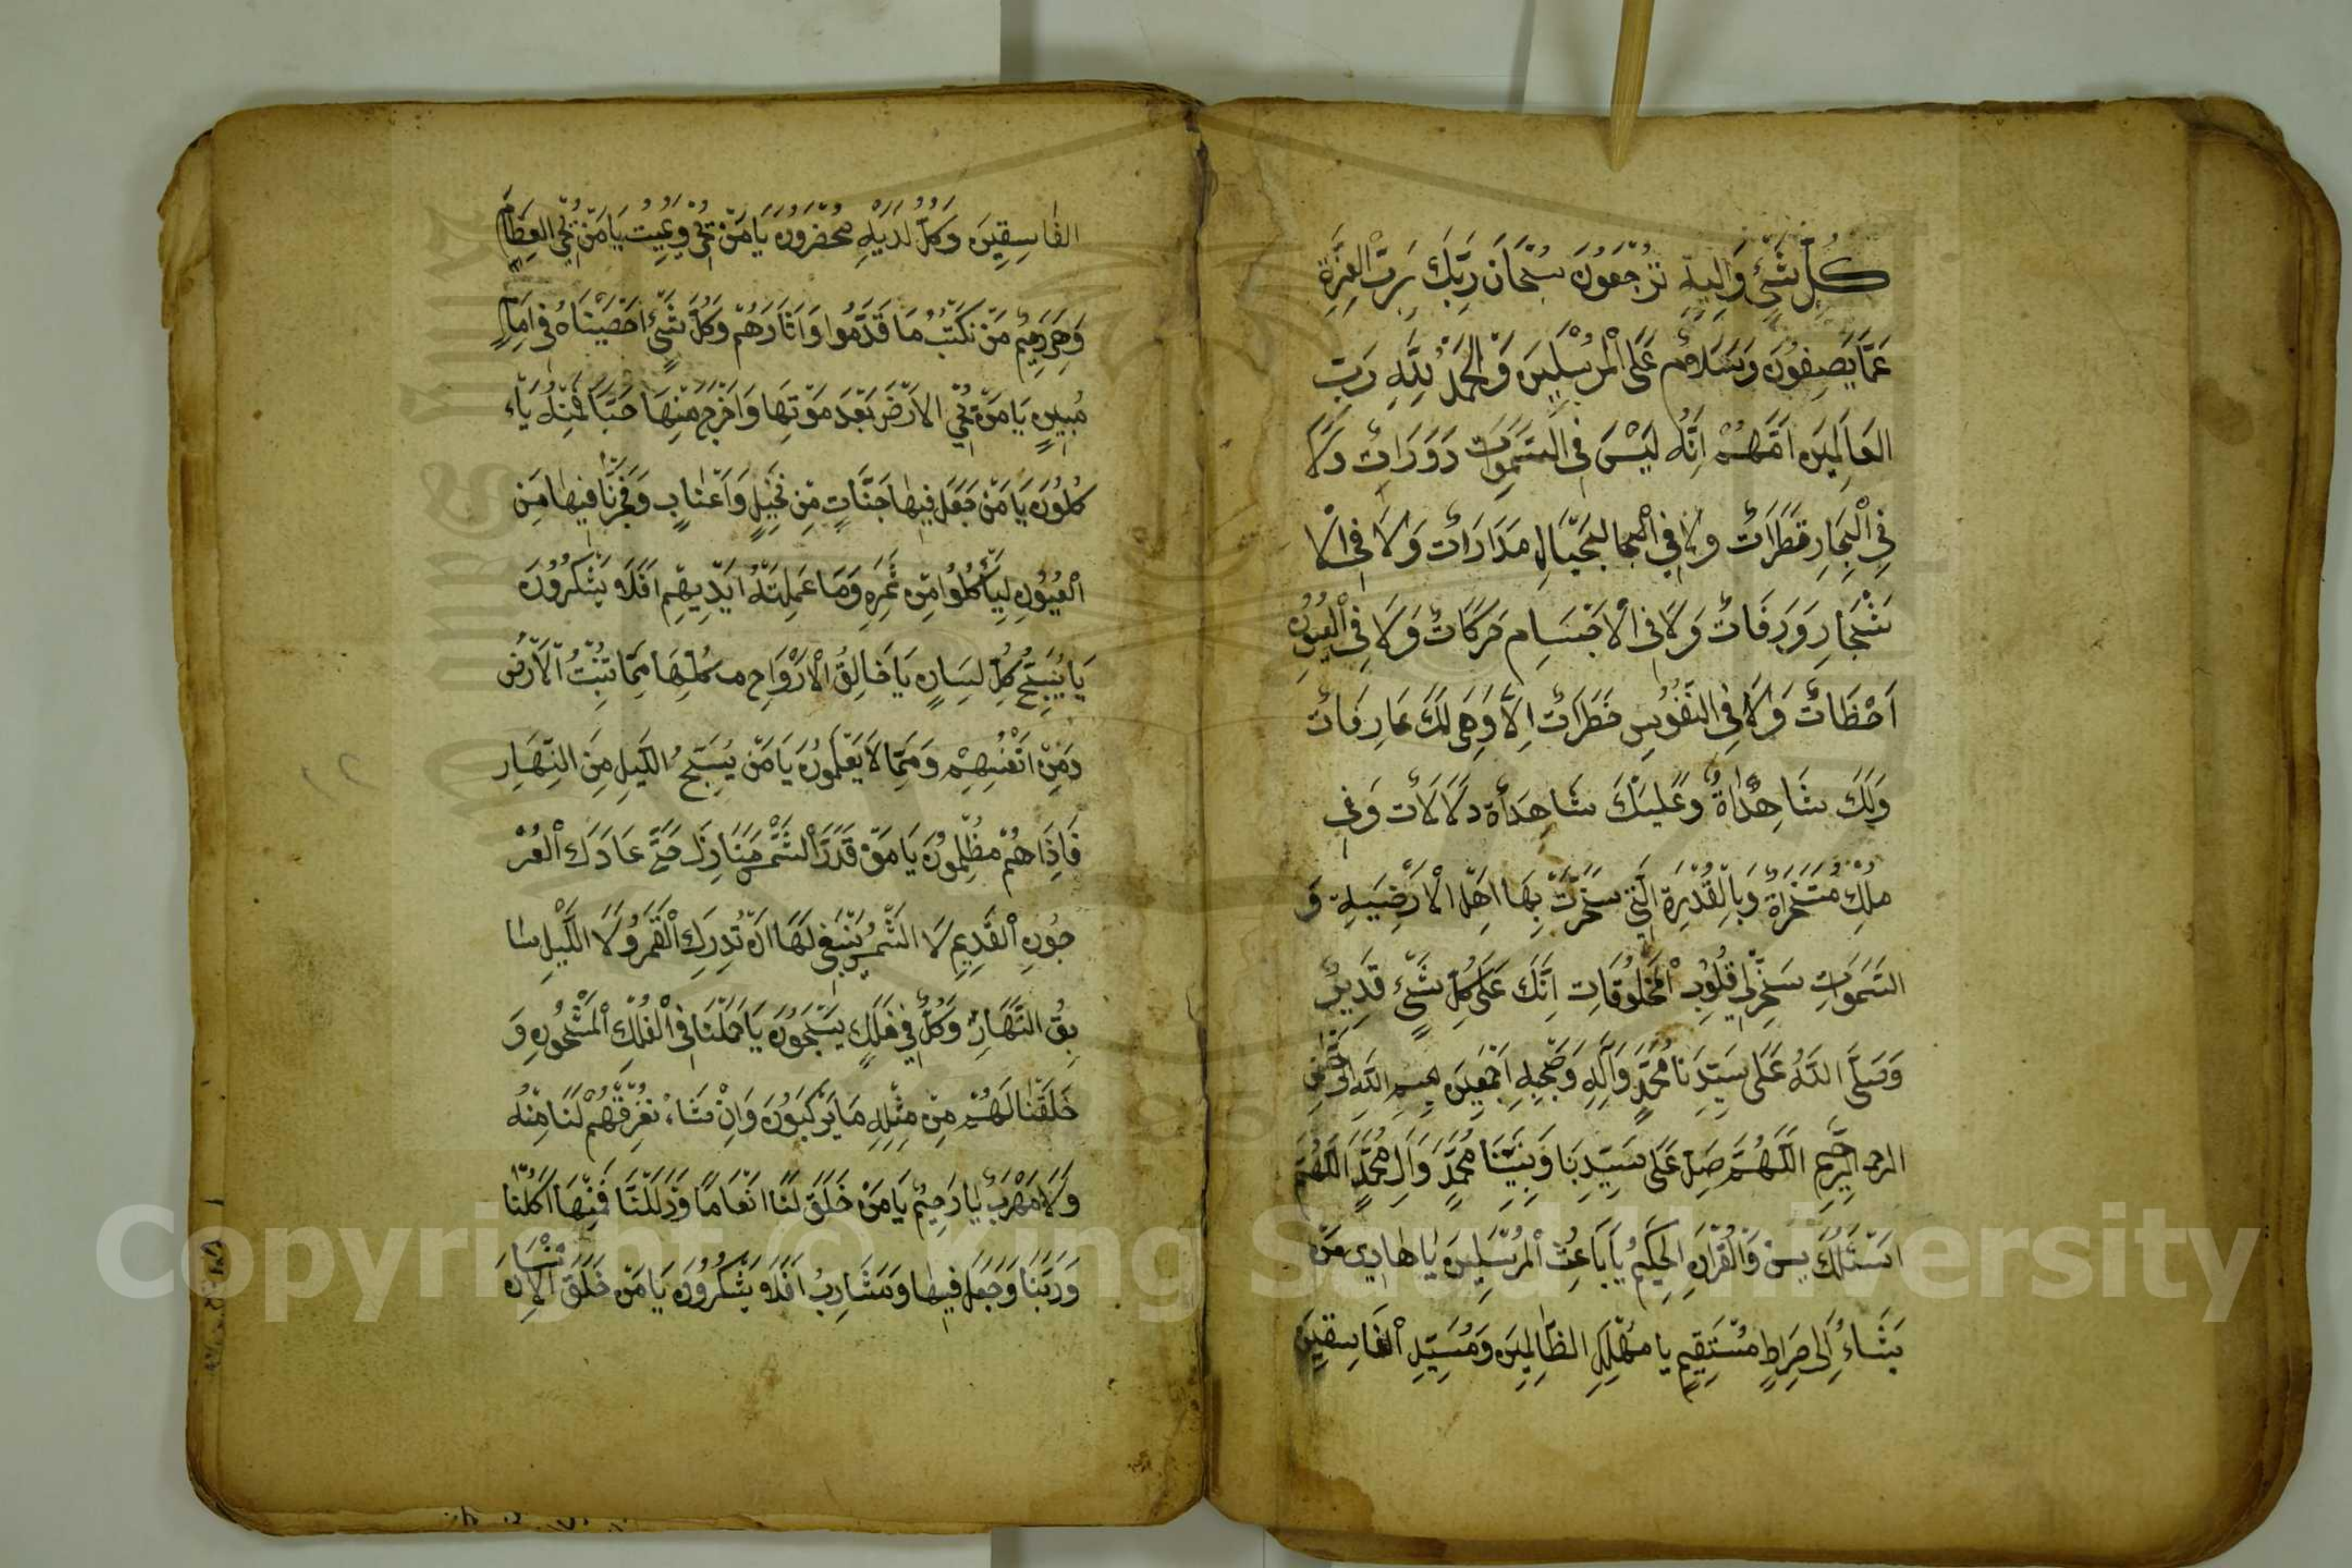 كُلِّ شَيْءٍ وَاِلَيْهِ تُرْجَعُونَ سُبْحَانَ رَبِّكَ رَبِّ الْعِزَّةِ
عَمَّا يَصِفُونَ وَسَلَامٌ عَلَى الْمُرْسَلِينَ وَالْحَمْدُ لِلّٰهِ رَبِّ
الْعَالَمِينَ اَللّٰهُمَّ اِنَّهُ لَيْسَ فِي السَّمَوَاتِ دَوَرَاتٌ وَلَا
فِي الْبِحَارِ قَطَرَاتٌ وَلَا فِي الْجِبَالِ مَدَارَاتٌ وَلَا فِي الْاَ
شْجَارِ وَرَقَاتٌ وَلَا فِي الْاَجْسَامِ حَرَكَاتٌ وَلَا فِي الْعُيُونِ
لَحْظَاتٌ وَلَا فِي النُّفُوسِ خَطَرَاتٌ اِلَّا وَهِيَ لَكَ عَارِفَاتٌ
وَلَكَ شَاهِدَاةٌ وَعَلَيْكَ شَاهِدَاةٌ دَلَالَاتٌ وَفِي
مُلْكِ مُتَخَرَاةٌ وَبِالْقُدْرَةِ الَّتِي سَخَّرْتَ بِهَا اَهْلَ الْاَرْضِيَةِ وَ
السَّمَوَاتِ سَخِّرْ لِي قُلُوبَ الْمَخْلُوقَاتِ اِنَّكَ عَلَى كُلِّ شَيْءٍ قَدِيرٌ
وَصَلَّى اللّٰهُ عَلَى سَيِّدِنَا مُحَمَّدٍ وَآلِهِ وَصَحْبِهِ اَجْمَعِينَ بِسْمِ اللّٰهِ الرَّحْمٰنِ
الرَّحِيمِ اَللّٰهُمَّ صَلِّ عَلَى سَيِّدِنَا وَنَبِيِّنَا مُحَمَّدٍ وَآلِ مُحَمَّدٍ اَللّٰهُمَّ
اَسْئَلُكَ يٰسٓ وَالْقُرْآنِ الْحَكِيمِ يَا بَاعِثَ الْمُرْسَلِينَ يَا هَادِي مَنْ
يَشَاءُ اِلَى صِرَاطٍ مُسْتَقِيمٍ يَا مُهْلِكَ الظَّالِمِينَ وَمُسَيِّدِ الْفَاسِقِينَ
الْفَاسِقِينَ وَكُلٌّ لَدَيْهِ مُحْضَرُونَ يَا مَنْ يُحْيِي وَيُمِيتُ يَا مَنْ يُحْيِي الْعِظَامَ
وَهِيَ رَمِيمٌ مَنْ نَكْتُبُ مَا قَدَّمُوا وَاٰثَارَهُمْ وَكُلَّ شَيْءٍ اَحْصَيْنَاهُ فِي اِمَامٍ
مُبِينٍ يَا مَنْ يُحْيِي الْاَرْضَ بَعْدَ مَوْتِهَا وَاَخْرَجَ مِنْهَا حَبًّا فَمِنْهُ يَاْ
كُلُونَ يَا مَنْ جَعَلَ فِيهَا جَنَّاتٍ مِنْ نَخِيلٍ وَاَعْنَابٍ وَفَجَّرْنَا فِيهَا مِنَ
الْعُيُونِ لِيَأْكُلُوا مِنْ ثَمَرِهِ وَمَا عَمِلَتْهُ اَيْدِيهِمْ اَفَلَا يَشْكُرُونَ
يَا يُسَبِّحُ كُلُّ لِسَانٍ يَا خَالِقُ الْاَرْوَاحِ كُلِّهَا مِمَّا تُنْبِتُ الْاَرْضُ
وَمِنْ اَنْفُسِهِمْ وَمِمَّا لَا يَعْلَمُونَ يَا مَنْ يُسَبِّحُ الَّيْلِ مِنَ النَّهَارِ
فَاِذَاهُمْ مُظْلِمُونَ يَا مَنْ قَدَّرَ الشَّمْسَ مَنَازِلَ حَتَّى عَادَ كَالْعُرْ
جُونِ الْقَدِيمِ لَا الشَّمْسُ يَنْبَغِي لَهَا اَنْ تُدْرِكَ الْقَمَرَ وَلَا الَّيْلُ سَا
بِقُ النَّهَارِ وَكُلٌّ فِي فَلَكٍ يَسْبَحُونَ يَا حَمَلْنَا فِي الْفُلْكِ الْمَشْحُونِ وَ
خَلَقْنَا لَهُمْ مِنْ مِثْلِهِ مَا يَرْكَبُونَ وَاِنْ نَشَاءْ نُغْرِقْهُمْ لَنَا مِنْهُ
وَلَا مَهْرَبُ يَا رَحِيمُ يَا مَنْ خَلَقَ لَنَا اَنْعَامًا وَذَلَلْنَا فَمِنْهَا اَكَلْنَا
وَرَبَّنَا وَجَعَلَ فِيهَا وَمَشَارِبُ اَفَلَا يَشْكُرُونَ يَا مَنْ خَلَقَ الْاِنْسَانَ
Copyright © King Saud University